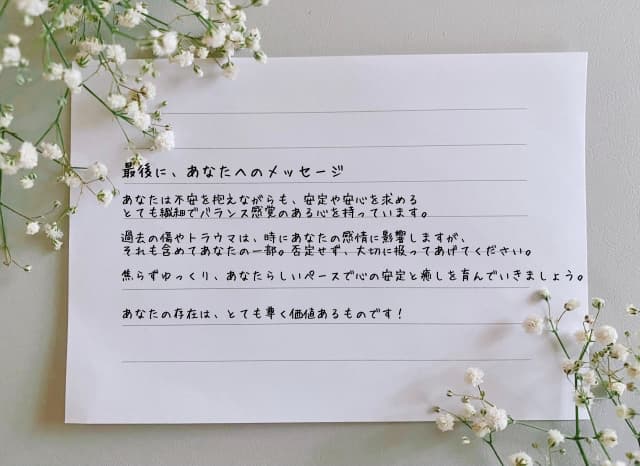 最後に、あなたへのメッセージ
あなたは不安を抱えながらも、安定や安心を求める
とても繊細でバランス感覚のある心を持っています。
過去の傷やトラウマは、時にあなたの感情に影響しますが、
それも含めてあなたの一部。否定せず、大切に扱ってあげてください。
焦らずゆっくり、あなたらしいペースで心の安定と癒しを育んでいきましょう。
あなたの存在は、とても尊く価値あるものです！